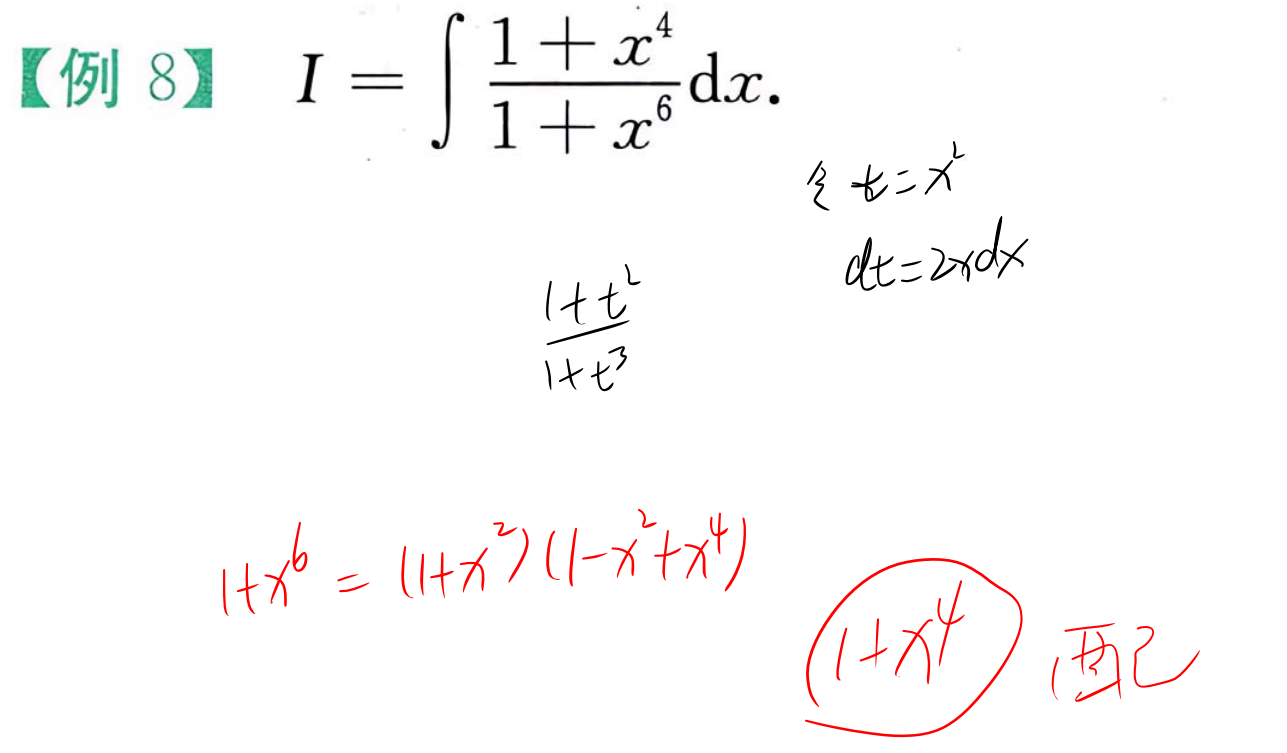 【例 8】 I = ∫ \frac{1+x^4}{1+x^6} dx.
令 t=x^2
dt=2xdx
\frac{1+t^2}{1+t^3}
1+x^6 = (1+x^2)(1-x^2+x^4)
1+x^4 配